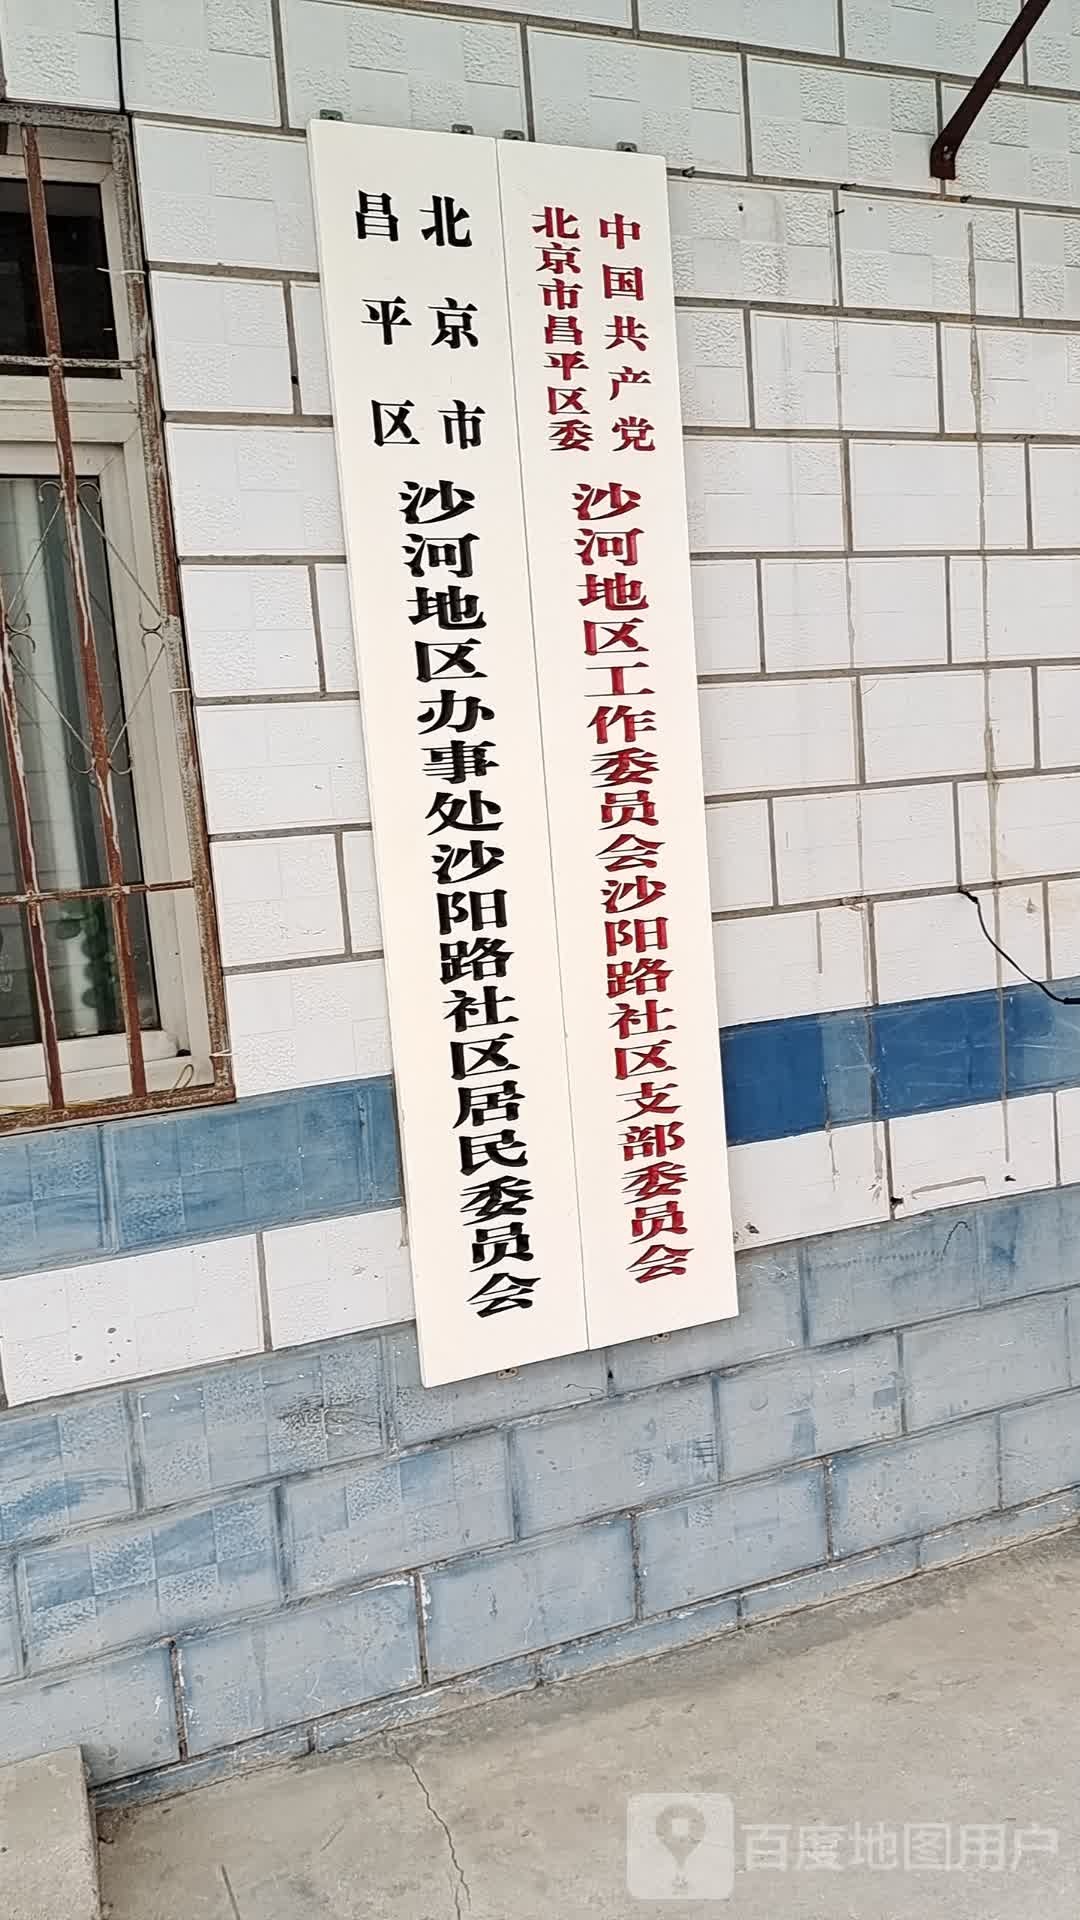 中国共产党
北京市昌平区委
沙河地区工作委员会沙阳路社区支部委员会
北京市
昌平区
沙河地区办事处沙阳路社区居民委员会
百度地图用户